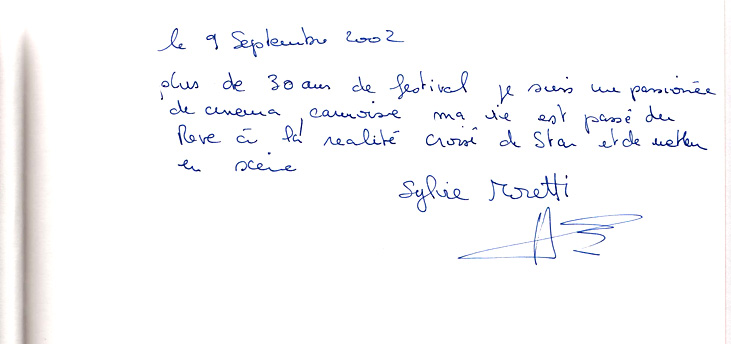 le 9 Septembre 2002
plus de 30 ans de festival je suis un passionée
de cinema, cannoise ma vie est passé du
Reve à la realité croisé de Star et de metteur
en scène
Sylvie Moretti